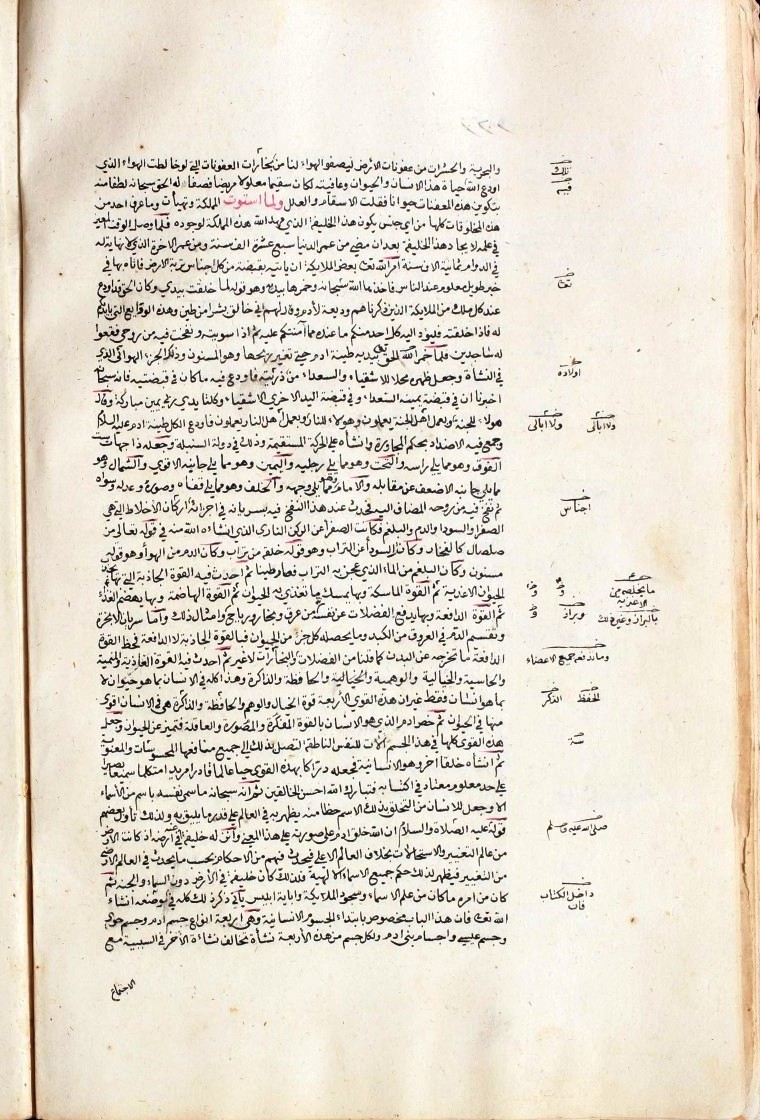 والبحرية والحشرات من عفونات الارض ليصفو الهواء لنا من بخارات العفونات التي لو خالطت الهواء الذي
اودع الله حياة هذا الانسان والحيوان وعافيته لكان سقيما معلولا مريضا فصفا له الحق سبحانه لطفا منه
بتكوين هذه المعفنات حيوانا فقلت الاسقام والعلل ولما استوت المملكة وتهيأت وما عرف احد من
هذه المخلوقات كلها من اي جنس يكون هذا الخليفة الذي مهد الله هذه المملكة لوجوده فلما وصل الوقت المعين
في علمه لايجاد هذا الخليفة بعد ان مضى من عمر الدنيا سبع عشرة الف سنة ومن عمر الاخرة الذي لا نهاية له
في الدوام ثمانية الاف سنة امر الله تعالى بعض الملايكة ان ياتيه بقبضة من كل اجناس تربة الارض فاتاه بها في
خبر طويل معلوم عند الناس فاخذها الله سبحانه وخمرها بيديه وهو قوله لما خلقت بيدي وكان الحق قد اودع
عند كل ملك من الملايكة الذين ذكرناهم وديعة لادم وقال لهم اني خالق بشرا من طين وهذه الودايع التي بايديكم
له فاذا خلقته فليؤد اليه كل احد منكم ما عنده مما آمنتكم عليه ثم اذا سويته ونفخت فيه من روحي فقعوا
له ساجدين فلما خمر الحق تعالى بيديه طينة ادم حتى تغير ريحها وهو المسنون وذلك الجزء الهوائي الذي
في النشأة وجعل ظهره محلا للاشقياء والسعداء من ذريته فاودع فيه ما كان في قبضتيه فانه سبحانه
اخبرنا ان في قبضة يمينه السعداء وفي قبضة اليد الاخرى الاشقياء وكلتا يدي ربي يمين مباركة وقال
هولاء للجنة وبعمل اهل الجنة يعملون وهولاء للنار وبعمل اهل النار يعملون فاودع الكل طينة ادم عليه السلام
وجمع فيه الاضداد بحكم المجاورة وانشأه على الحركة المستقيمة وذلك في دولة السنبلة وجعله ذا جهات ست
الفوق وهو ما يلي راسه والتحت وهو ما يلي رجليه واليمين وهو ما يلي جانبه الاقوى والشمال وهو
ما يلي جانبه الاضعف عن مقابله والامام وهو ما يلي وجهه والخلف وهو ما يلي قفاه وصوره وعدله وسواه
ثم نفخ فيه من روحه المضاف اليه فحدث عند هذا النفخ فيه بسريانه في اجزائه اركان الاخلاط التي هي
الصفرا والسودا والدم والبلغم فكانت الصفرا عن الركن الناري الذي انشاءه الله منه في قوله تعالى من
صلصال كالفخار وكانت السودا عن التراب وهو قوله خلقه من تراب وكان الدم من الهوا وهو قوله
مسنون وكان البلغم من الماء الذي عجن به التراب فصار طينا ثم احدث فيه القوة الجاذبة التي بها يجذب
الحيوان الاغذية ثم القوة الماسكة وبها يمسك ما يتغذى به الحيوان ثم القوة الهاضمة وبها يهضم الغذاء
ثم القوة الدافعة وبها يدفع الفضلات عن نفسه من عرق وبخار ورياح وامثال ذلك واما سريان الابخرة
وتقسيم الدم في العروق من الكبد وما يحصله كل جزء من الحيوان فبا القوة الجاذبة لا الدافعة فحظ القوة
الدافعة ما تخرجه عن البدن كما قلنا من الفضلات والبخارات لا غير ثم احدث فيه القوة الغاذية والمنمية
والحاسية والخيالية والوهمية والحافظة والذاكرة وهذا كله في الانسان بما هو حيوان لا
بما هو انسان فقط غير ان هذه القوى الاربعة قوة الخيال والوهم والحافظة والذاكرة هي في الانسان اقوى
منها في الحيوان ثم خص ادم الذي هو الانسان بالقوة المفكرة والمصورة والعاقلة فتميز عن الحيوان وجعل
هذه القوى كلها في هذا الجسم الات للنفس الناطقة لتصل بذلك الى جميع منافعها المحسوسات والمعنوية
ثم انشاه خلقا اخر وهو الانسانية فجعله درّاكا بهذه القوى حيا عالما قادرا مريدا متكلما سميعا بصيرا
على حد معلوم معتاد في اكتسابه فتبارك الله احسن الخالقين ثم انه سبحانه ما سمى نفسه باسم من الأسماء
الا وجعل للانسان من التخلق بذلك الاسم حظا منه يظهر به في العالم على قدر ما يليق به ولذلك تأول بعضهم
قوله عليه الصلاة والسلام ان الله خلق ادم على صورته على هذا المعنى وانزله خليفة في ارضه اذ كانت الارض
من عالم التغيير والاستحالات بخلاف العالم الاعلى فيحدث فيهم من الاحكام بحسب ما يحدث في العالم الارضي
من التغيير فيظهر لذلك حكم جميع الاسماء الالهية فلذلك كان خليفة في الارض دون السماء والجنة ثم
كان من امره ما كان من علم الاسماء وسجود الملايكة واباية ابليس يأتي ذكر ذلك كله في موضعه ان شاء
الله تعالى فان هذا الباب مخصوص بابتداء الجسوم الانسانية وهي اربعة انواع جسم ادم وجسم حوى
وجسم عيسى واجسام بني ادم وكل جسم من هذه الاربعة نشأة تخالف نشاءة الاخر في السببية مع
الاجتماع
تلك
فيه
تعالى
اولاده
ولا ابالي
ولا ابالي
اجناس
ما يخلصه من
الاغذية
وبراز
بالبراز وغير ذلك
وما تدفعه جميع الاعضاء
الحفظ
الذكر
صلى الله عليه وسلم
داخل الكتاب